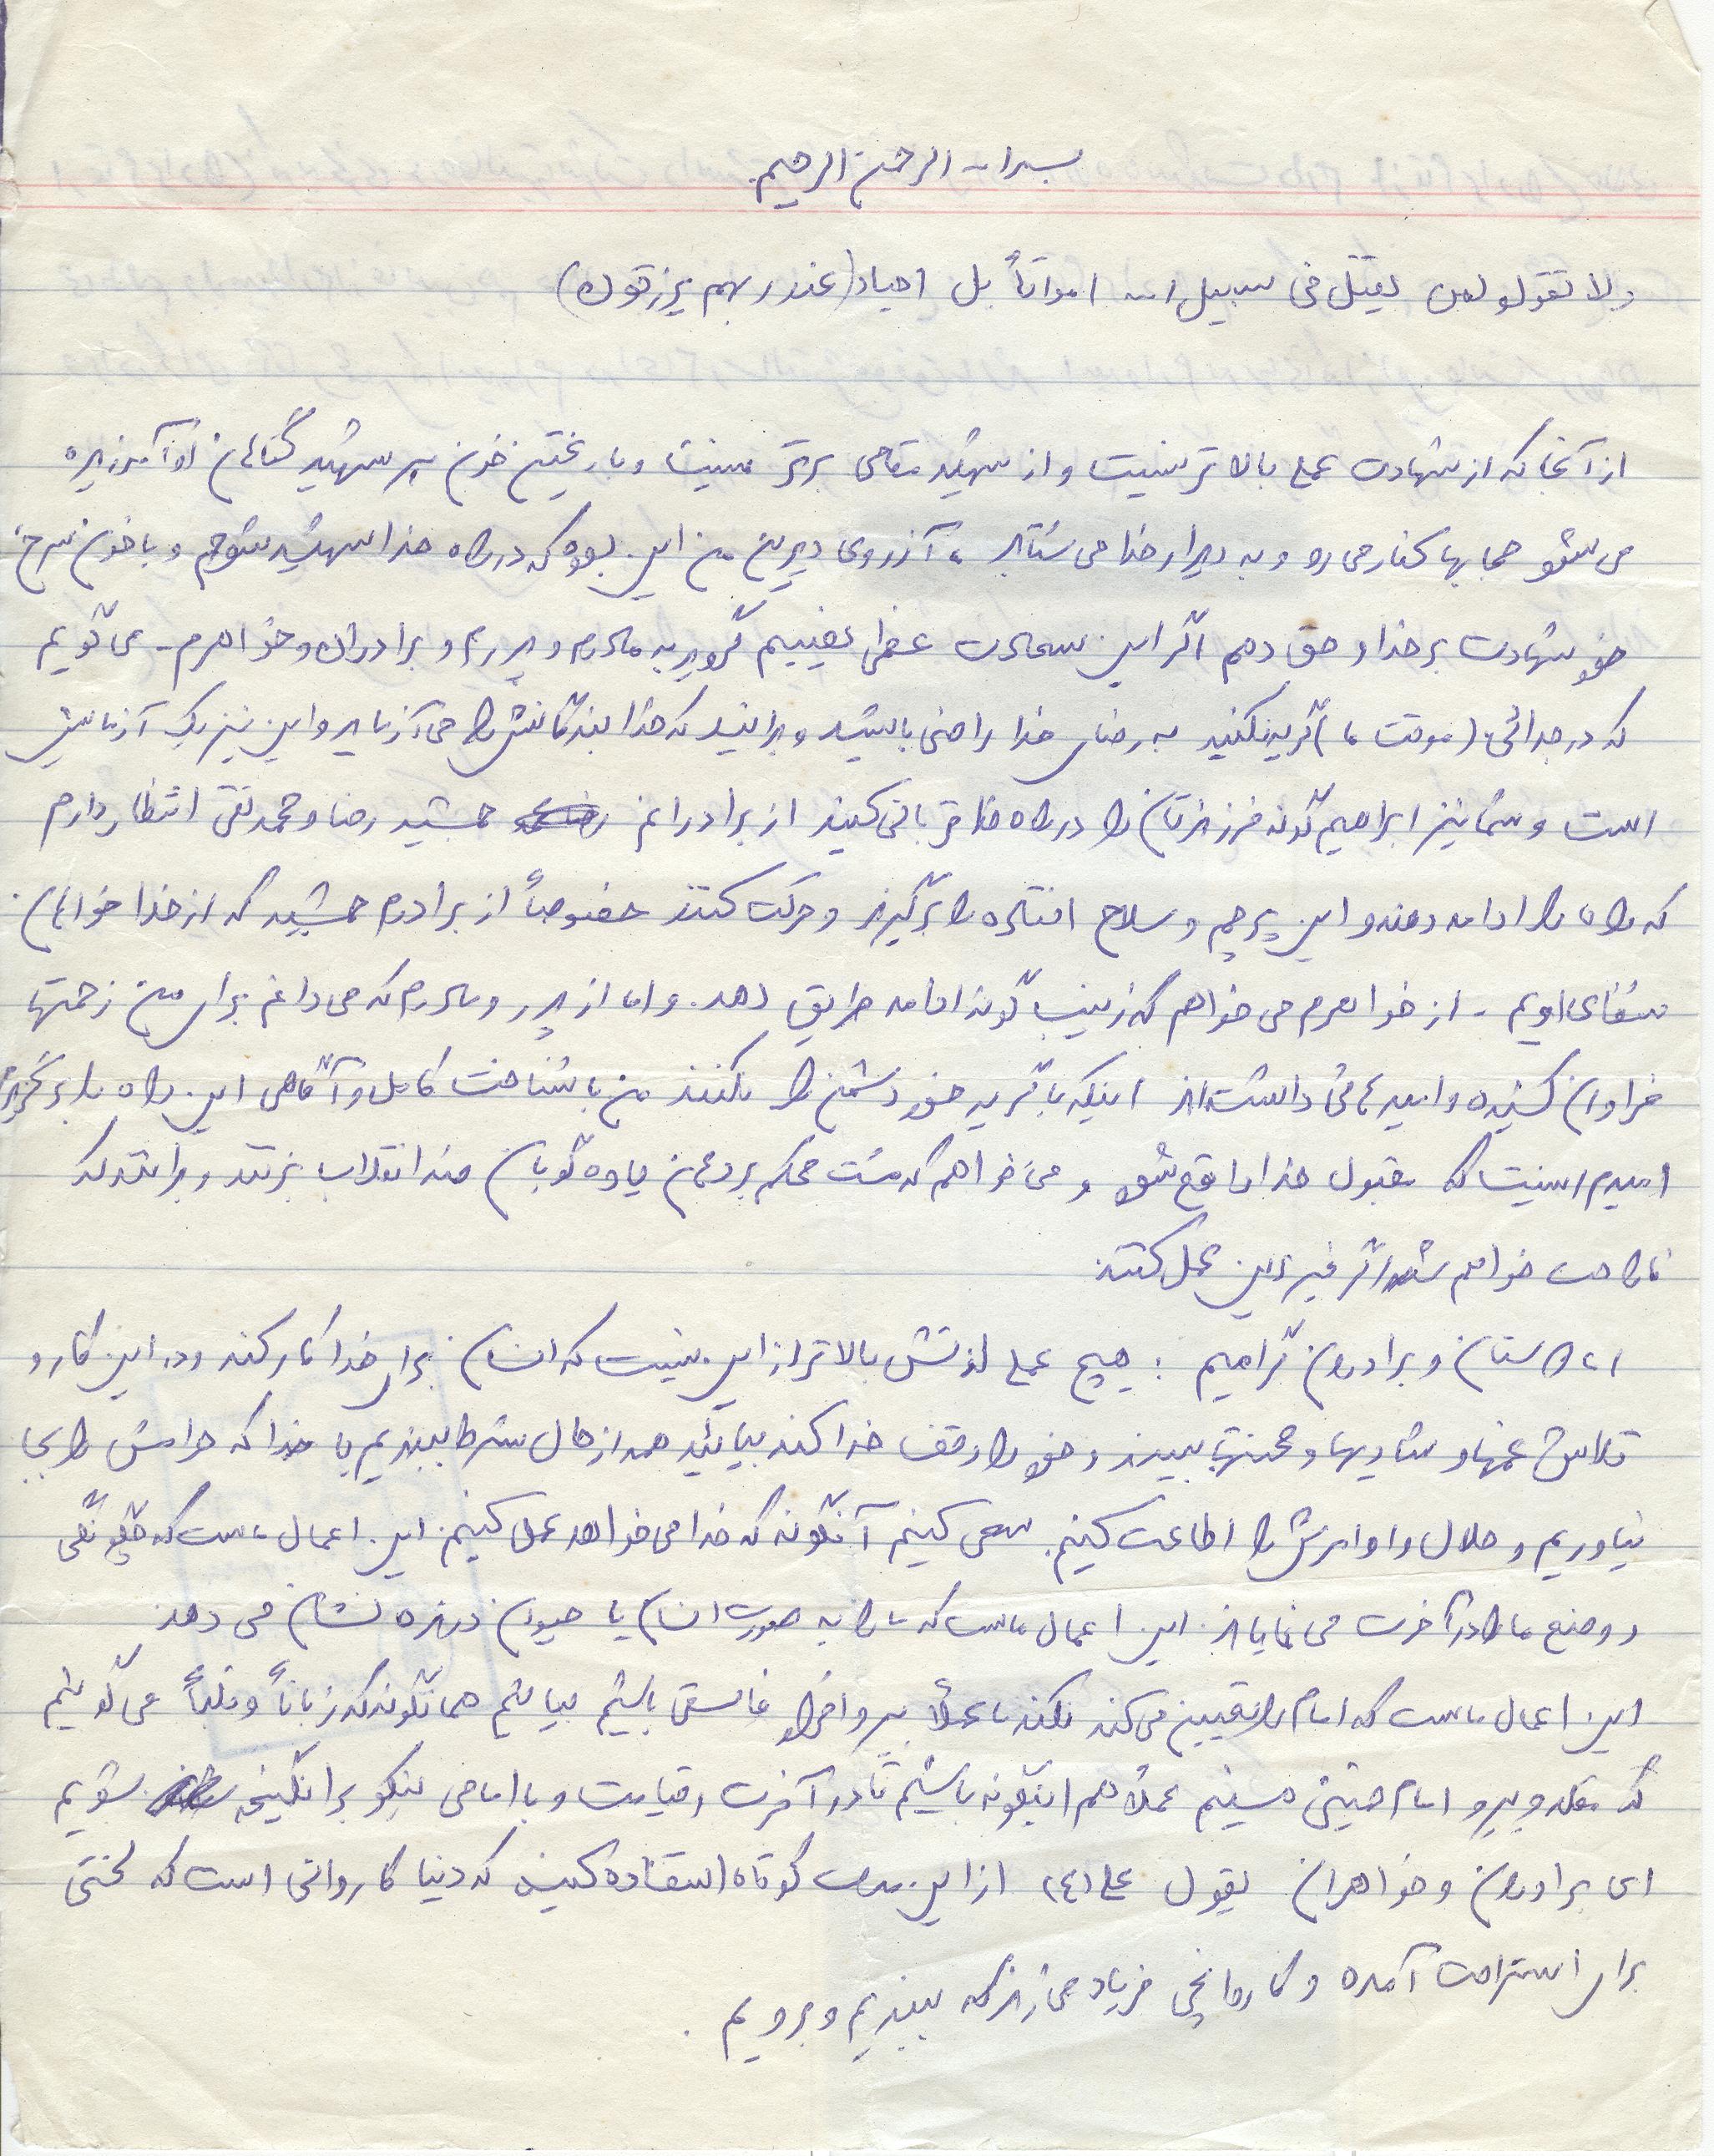 بسم الله الرحمن الرحیم
ولا تقولو لمن یقتل فی سبیل الله امواتاً بل احیاء (عند ربهم یرزقون)
از آنجا که از شهادت عملی بالاتر نیست و از شهید مقامی برتر نیست و با ریختن خون هر شهید گناهان او آمرزیده
می شود حجابها کنار می رود و به دیدار خدا می شتابد ، آرزوی دیرین من این بود که در راه خدا شهید شوم و با خون سرخ
خود شهادت بر خدا و حق دهم اگر این سعادت عظمی نصیبم گردید به مادرم و پدرم و برادران و خواهرم - می گویم
که در جدائی (موقت ما) گریه نکنید به رضای خدا راضی باشید و بدانید که خدا بندگانش را می آزماید و این نیز یک آزمایش
است و شما نیز ابراهیم گونه فرزندتان را در راه خدا قربانی کنید از برادرانم جمشید رضا و محمد تقی انتظار دارم
که راه ما را ادامه دهند و این پرچم و سلاح افتاده را برگیرند و حرکت کنند خصوصاً از برادرم جمشید که از خدا خواهان
شفای اویم - از خواهرم می خواهم که زینب گونه ادامه طریق دهد. و اما از پدر و مادرم که می دانم برای من زحمتها
فراوان کشیده و امیدهائی داشته اند اینکه با گریه خود دشمن را نکنند من با شناخت کامل و آگاهی این راه را برگزیدم
امیدم اینست که مقبول خدا واقع شود و می خواهم که مشت محکم بر دهان یاوه گویان ضد انقلاب بزنند و بدانند که
ناراحت خواهم شد اگر غیر از این عمل کنند.
ای دوستان و برادران گرامیم : هیچ عملی لذتش بالاتر از این نیست که انسان برای خدا کار کند و در این کار و
تلاش غمها و شادیها و محنتها ببیند و خود را وقف خدا کند بیائید همه از حال شرط ببندیم با خدا که حرامش را بجا
نیاوریم و حلال و اوامرش را اطاعت کنیم. سعی کنیم آنگونه که خدا می خواهد عمل کنیم. این اعمال ماست که چگونگی
و وضع ما را در آخرت می نمایاند. این اعمال ماست که ما را به صورت انسان یا حیوان درنده نشان می دهد
این اعمال ماست که امام را تعیین می کند نکند ما عملاً پیرو افراد فاسق باشیم بیائیم همانگونه که زباناً و قلباً می گوئیم
که مقلد و پیرو امام خمینی هستیم عملاً هم اینگونه باشیم تا در آخرت و قیامت و با امامی نیکو برانگیخته شویم
ای برادران و خواهران بقول علی (ع) از این مدت کوتاه استفاده کنید که دنیا کاروانی است که لختی
برای استراحت آمده و کاروانچی فریاد می زند که ببندیم و برویم .